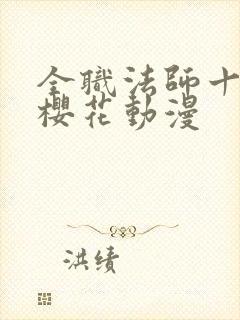 全職法師十
櫻花動漫
洪绩